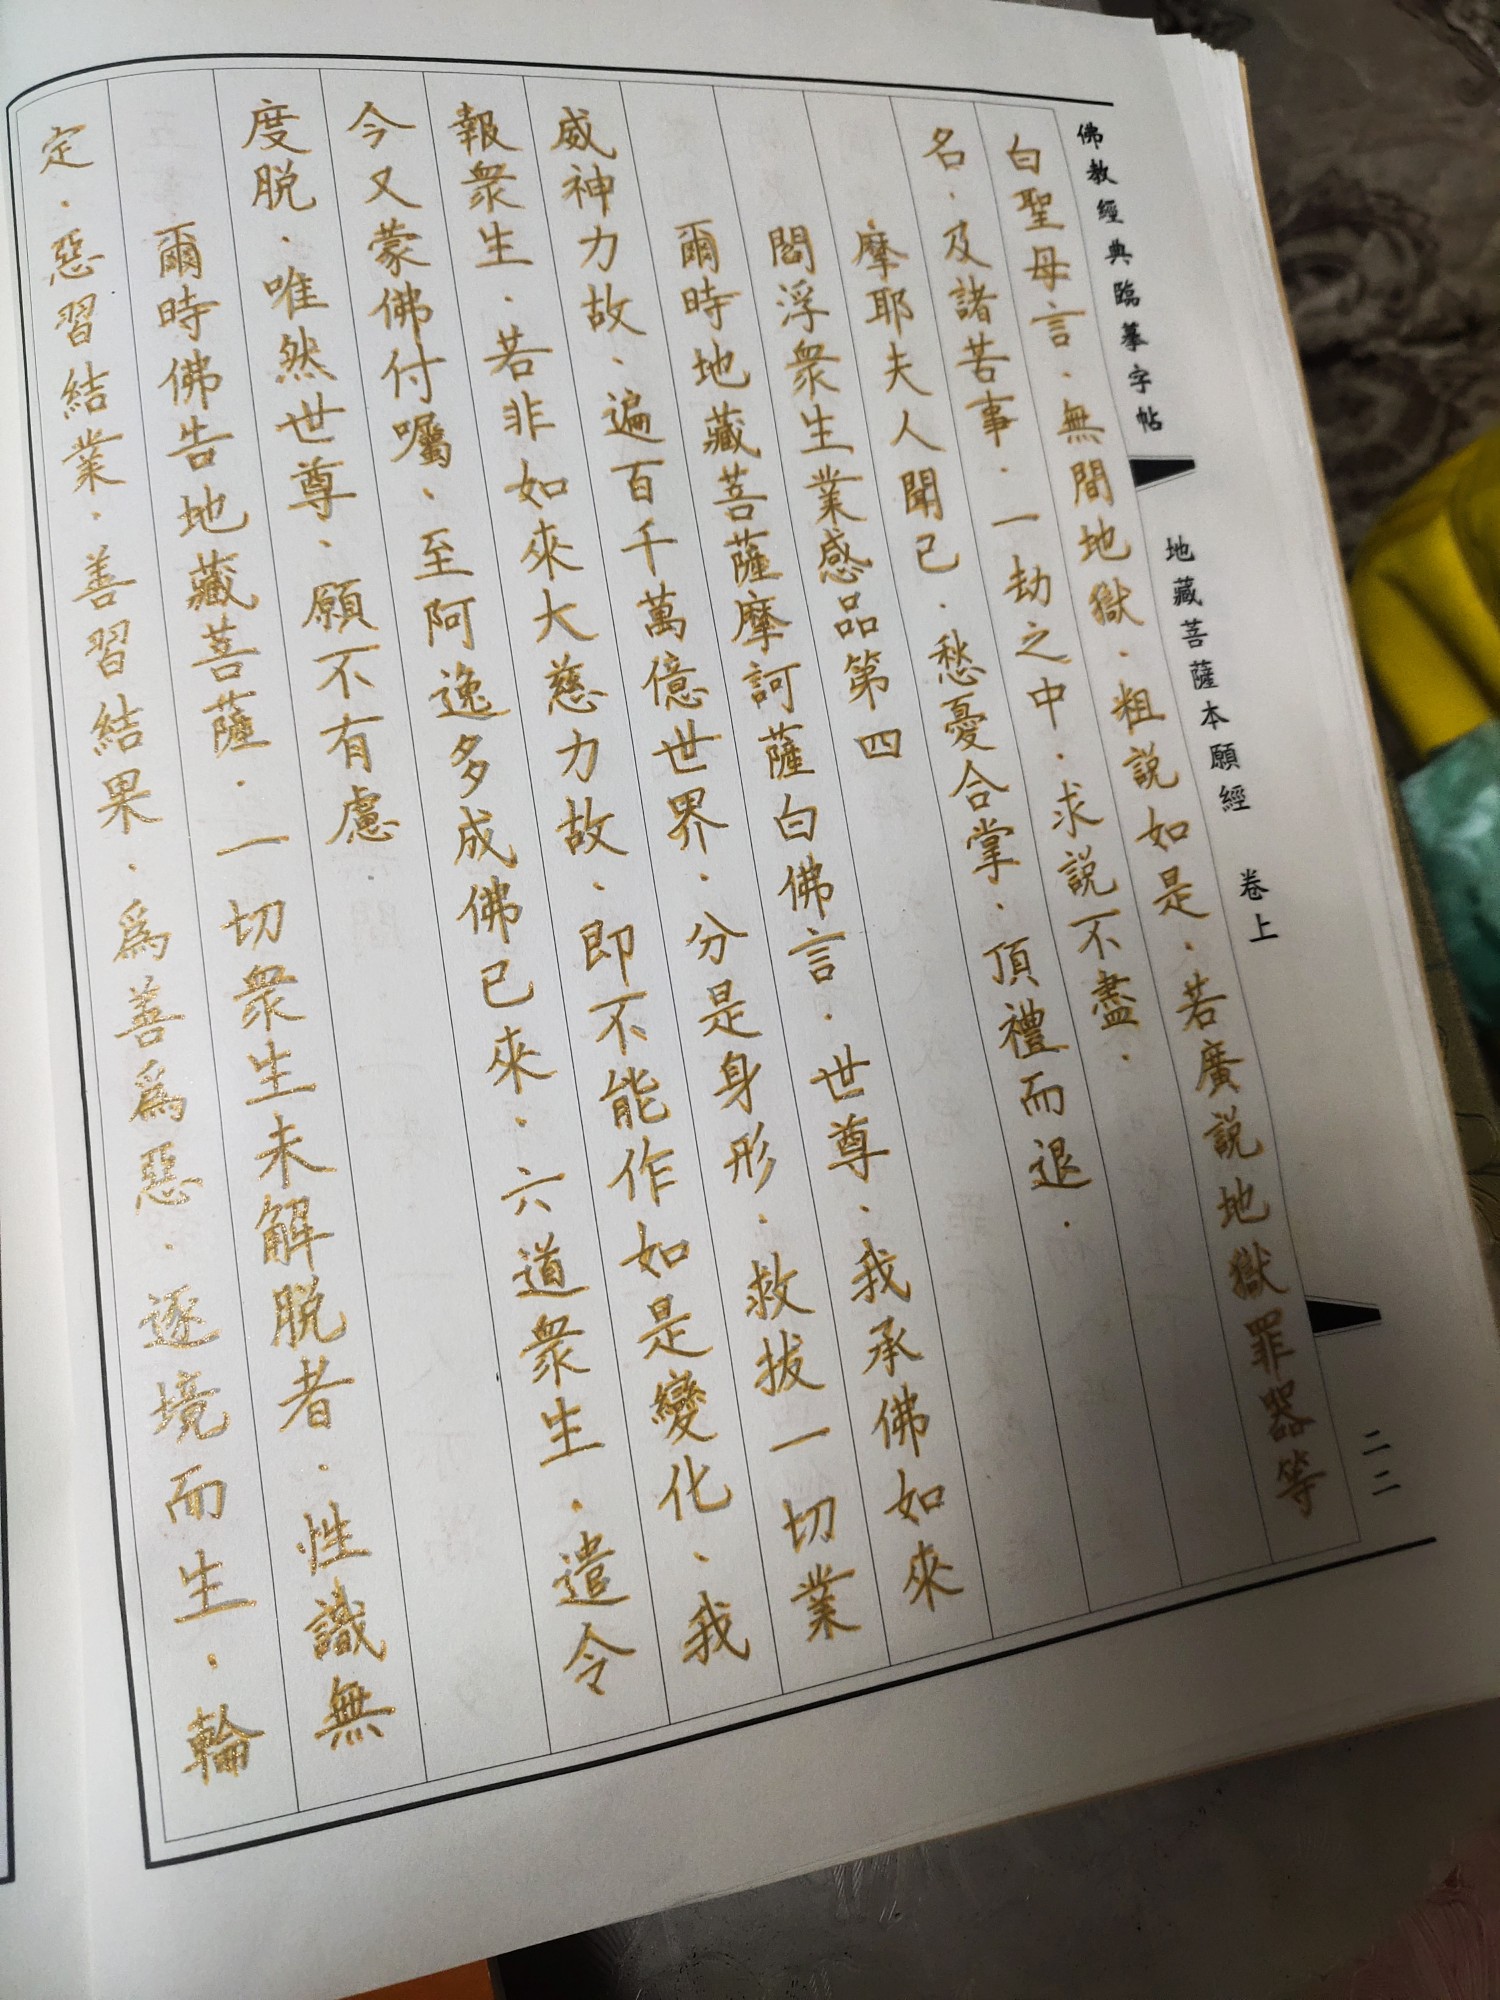 佛教經典臨摹字帖 地藏菩薩本願經 卷上 二二
白聖母言．無間地獄．粗說如是．若廣說地獄罪器等
名．及諸苦事．一劫之中．求說不盡．
摩耶夫人聞已．愁憂合掌．頂禮而退．
閻浮衆生業感品第四
爾時地藏菩薩摩訶薩白佛言．世尊．我承佛如來
威神力故、遍百千萬億世界．分是身形．救拔一切業
報衆生．若非如來大慈力故．即不能作如是變化、我
今又蒙佛付囑、至阿逸多成佛已來．六道衆生．遣令
度脱．唯然世尊、願不有慮
爾時佛告地藏菩薩．一切衆生未解脱者．性識無
定．惡習結業．善習結果．爲善爲惡．逐境而生．輪